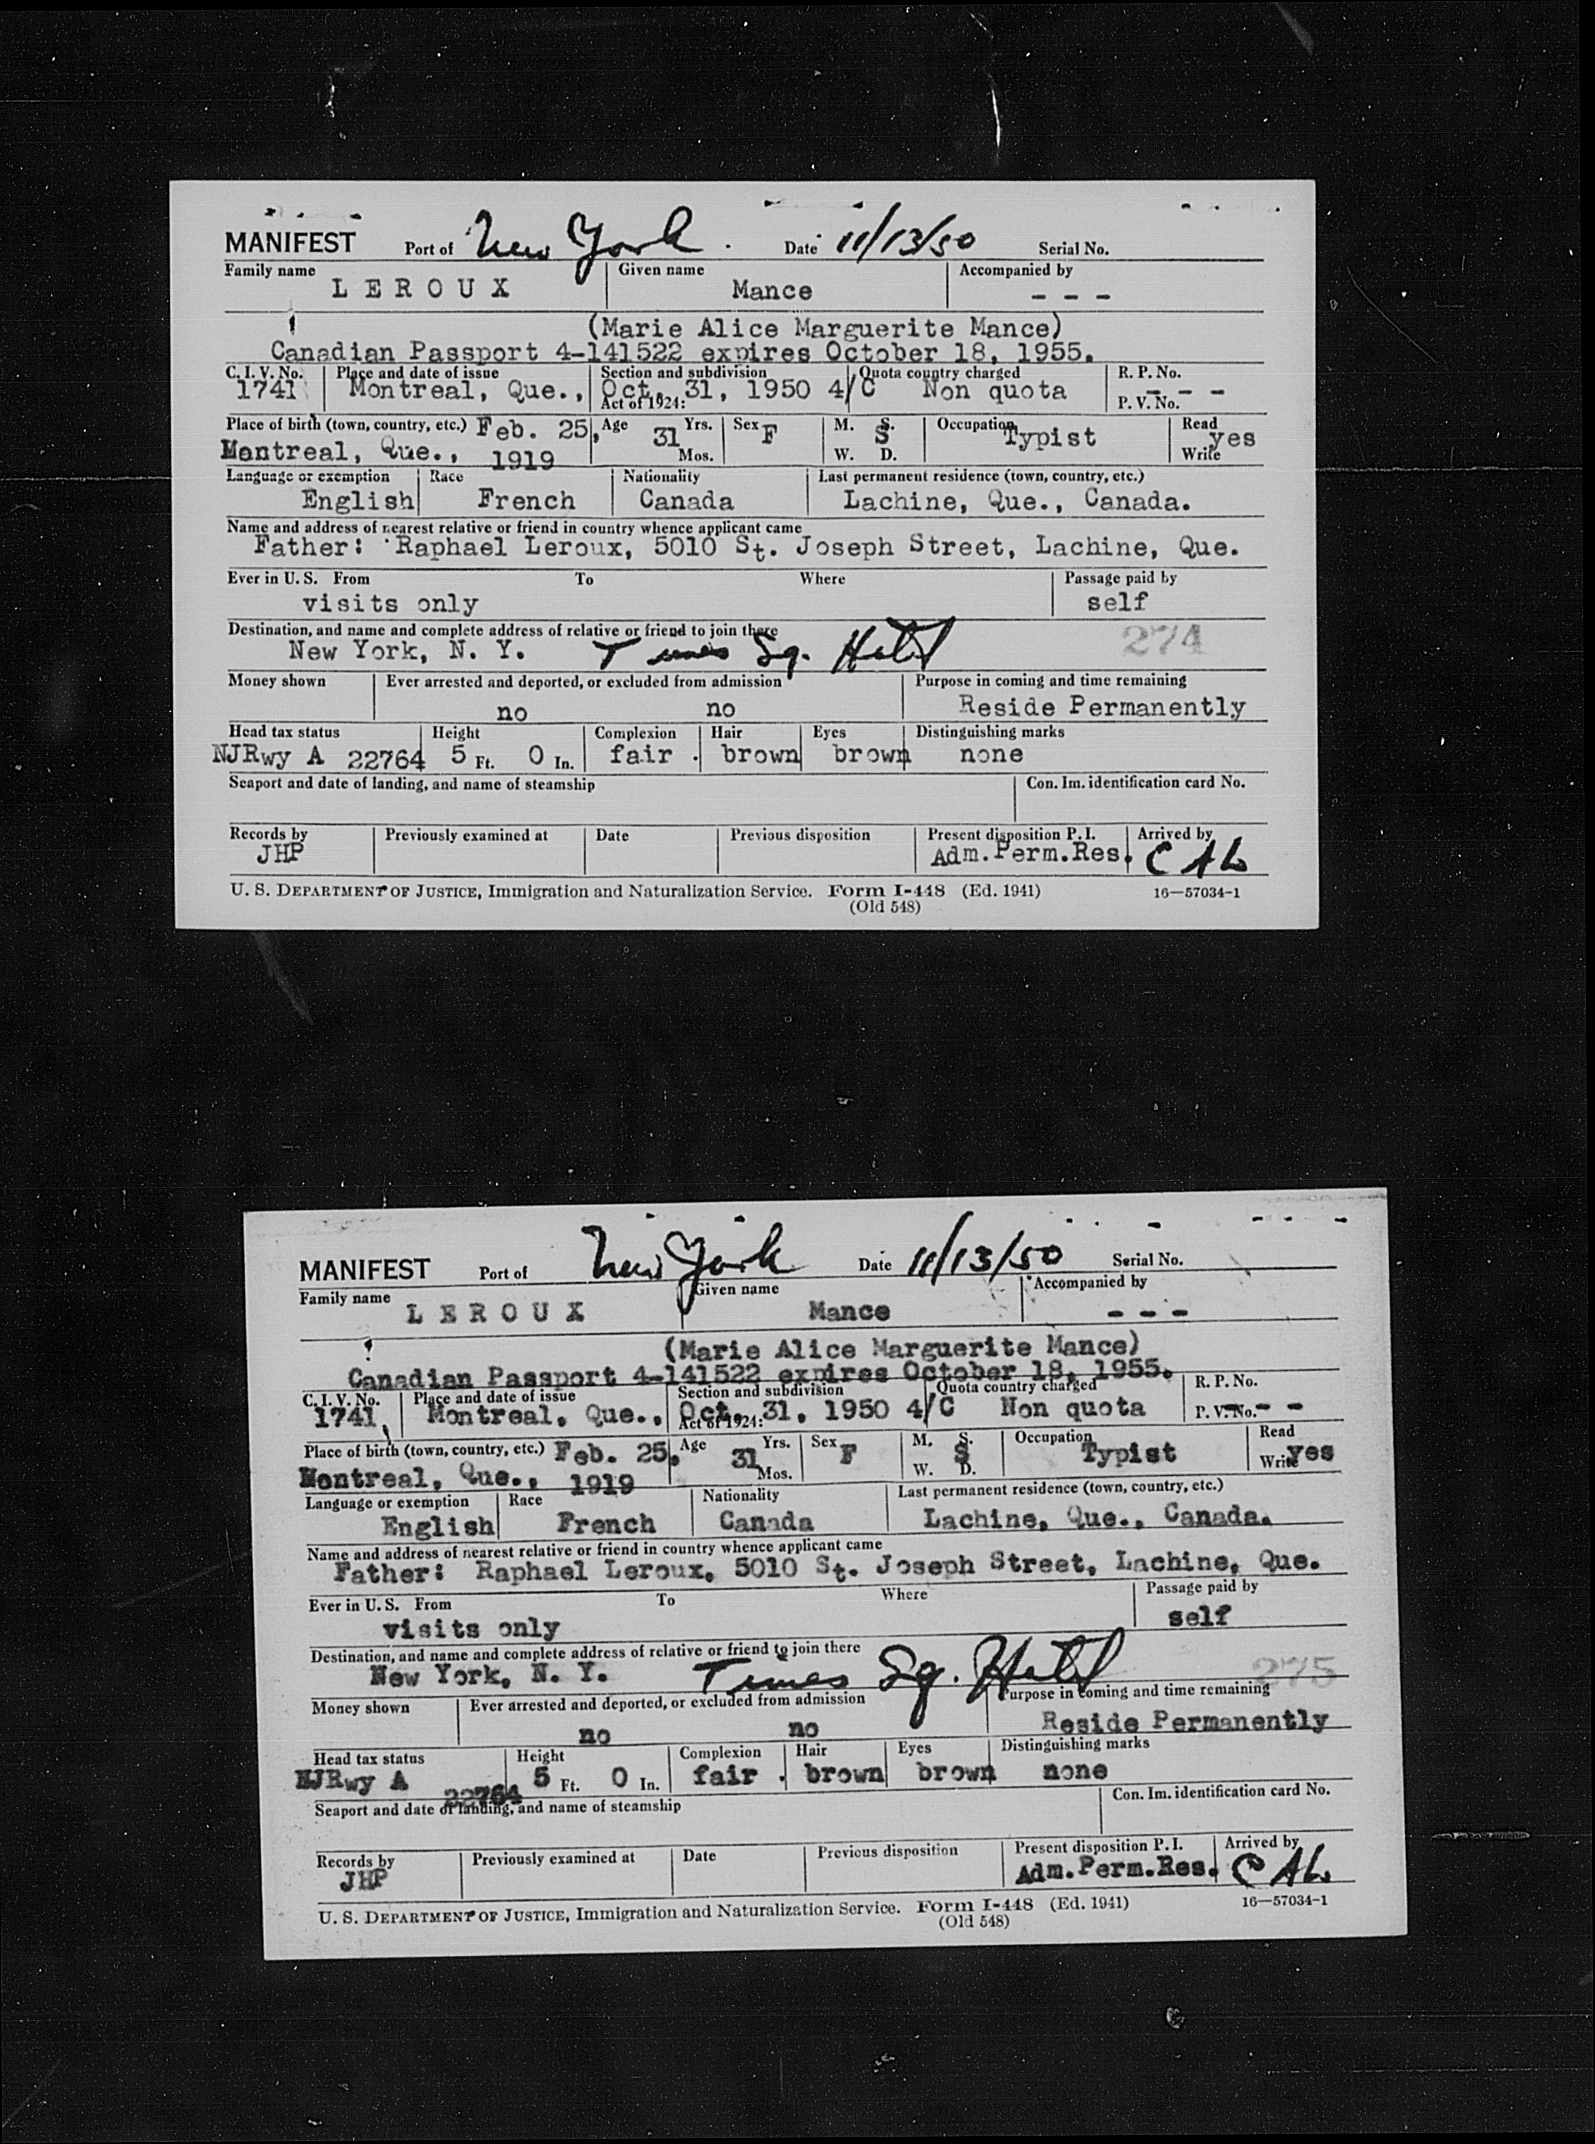 MANIFEST Port of New York Date 11/13/50 Serial No.
Family name Given name Accompanied by
LEROUX Mance - - -
(Marie Alice Marguerite Mance)
Canadian Passport 4-141522 expires October 18, 1955.
C. I. V. No. Place and date of issue Section and subdivision Quota country charged R. P. No.
1741 Montreal, Que., Oct. 31, 1950 4/C Non quota - - -
Act of 1924: P. V. No.
Place of birth (town, country, etc.) Feb. 25, Age 31 Yrs. Sex F M. S. Occupation Typist Read yes
Montreal, Que., 1919 Mos. W. D. Write
Language or exemption Race Nationality Last permanent residence (town, country, etc.)
English French Canada Lachine, Que., Canada.
Name and address of nearest relative or friend in country whence applicant came
Father: Raphael Leroux, 5010 St. Joseph Street, Lachine, Que.
Ever in U. S. From To Where Passage paid by
visits only self
Destination, and name and complete address of relative or friend to join there
New York, N. Y. Times Sq. Hotel 274
Money shown Ever arrested and deported, or excluded from admission Purpose in coming and time remaining
no no Reside Permanently
Head tax status Height Complexion Hair Eyes Distinguishing marks
NJRwy A 22764 5 Ft. 0 In. fair . brown brown none
Seaport and date of landing, and name of steamship Con. Im. identification card No.
Records by Previously examined at Date Previous disposition Present disposition P. I. Arrived by
JHP Adm.Perm.Res. C A L
U. S. DEPARTMENT OF JUSTICE, Immigration and Naturalization Service. Form I-448 (Ed. 1941) 16—57034-1
(Old 548)
MANIFEST Port of New York Date 11/13/50 Serial No.
Family name Given name Accompanied by
LEROUX Mance - - -
(Marie Alice Marguerite Mance)
Canadian Passport 4-141522 expires October 18, 1955.
C. I. V. No. Place and date of issue Section and subdivision Quota country charged R. P. No.
1741 Montreal, Que., Oct. 31, 1950 4/C Non quota - - -
Act of 1924: P. V. No.
Place of birth (town, country, etc.) Feb. 25, Age 31 Yrs. Sex F M. S. Occupation Typist Read yes
Montreal, Que., 1919 Mos. W. D. Write
Language or exemption Race Nationality Last permanent residence (town, country, etc.)
English French Canada Lachine, Que., Canada.
Name and address of nearest relative or friend in country whence applicant came
Father: Raphael Leroux, 5010 St. Joseph Street, Lachine, Que.
Ever in U. S. From To Where Passage paid by
visits only self
Destination, and name and complete address of relative or friend to join there
New York, N. Y. Times Sq. Hotel 275
Money shown Ever arrested and deported, or excluded from admission Purpose in coming and time remaining
no no Reside Permanently
Head tax status Height Complexion Hair Eyes Distinguishing marks
NJRwy A 22764 5 Ft. 0 In. fair . brown brown none
Seaport and date of landing, and name of steamship Con. Im. identification card No.
Records by Previously examined at Date Previous disposition Present disposition P. I. Arrived by
JHP Adm.Perm.Res. C A L
U. S. DEPARTMENT OF JUSTICE, Immigration and Naturalization Service. Form I-448 (Ed. 1941) 16—57034-1
(Old 548)